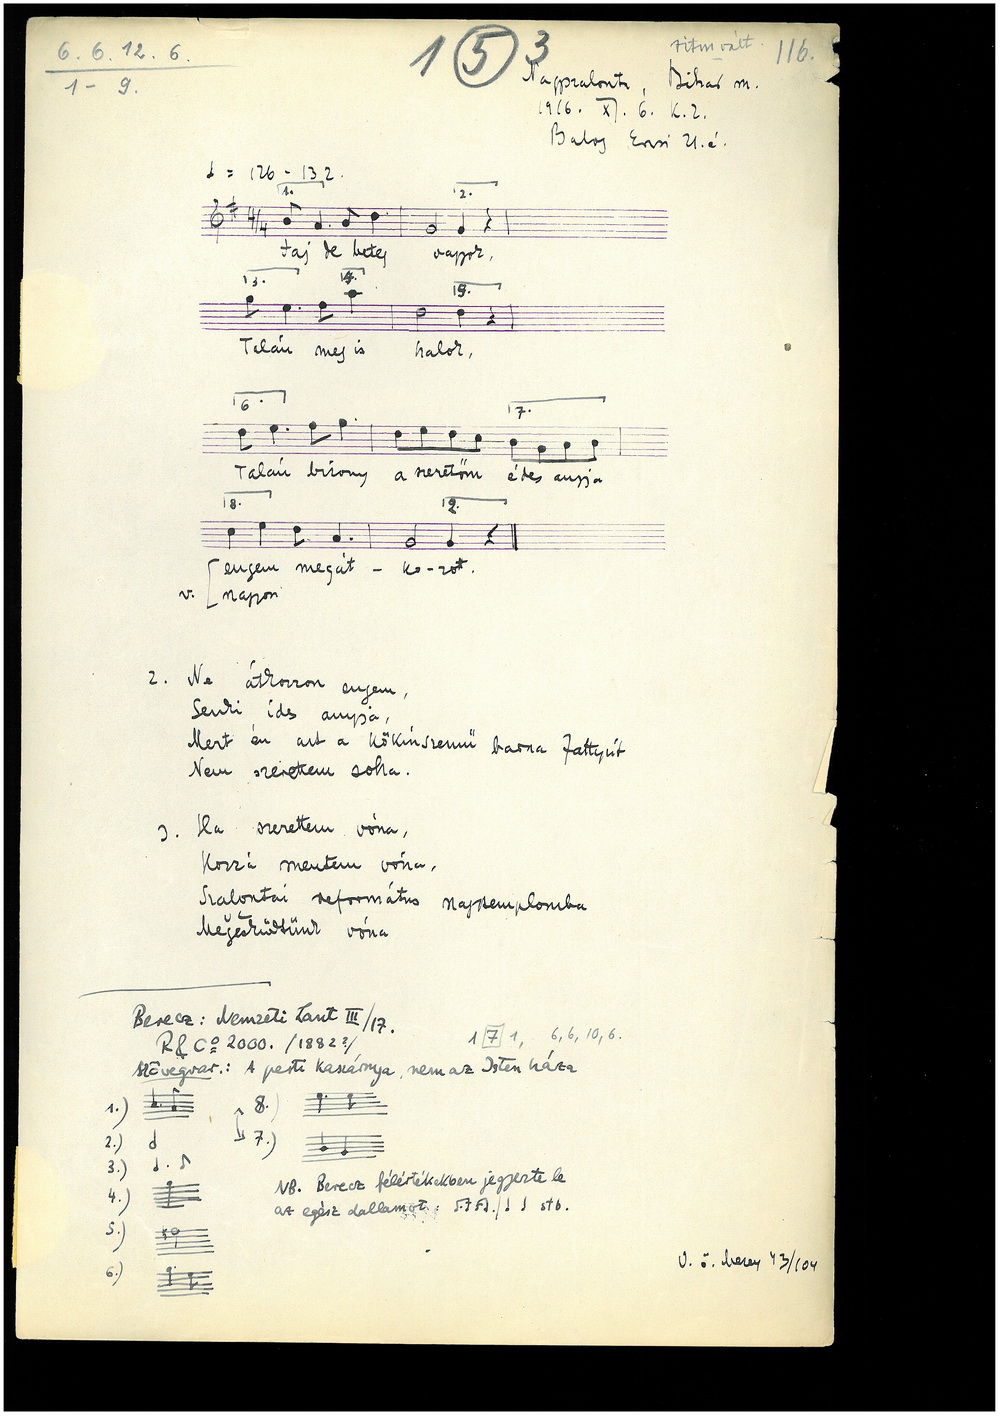 6. 6. 12. 6.
1 - 9.
1 (5) 3
ritm vált. 116.
Nagyszalonta, Bihar m.
1916. XI. 6. K. Z.
Balog Erzsi 21. é.
♩ = 126 - 132.
1. 2.
Jaj de beteg vagyok,
3. 4. 5.
Talán meg is halok,
6. 7.
Talán bizony a szeretőm édes anyja
8. 9.
engem megát - ko-zot.
v. napon
2. Ne átkozzon engem,
Senki ides anyja,
Mert én azt a kőkinszemű barna fattyút
Nem szeretem soha.
3. Ha szerettem vóna,
Hozzá mentem vóna,
Szalontai református nagytemplomba
Megesküdtünk vóna
Berecz: Nemzeti Lant III/17.
R & Co 2000. /1882?/
1 7 1, 6, 6, 10, 6.
Szövegvar.: A pesti kaszárnya, nem az Isten háza
1.) 8.)
2.) 7.)
3.)
4.)
5.)
6.)
NB. Berecz félértékekben jegyezte le
az egész dallamot: stb.
V. ö. 43/104